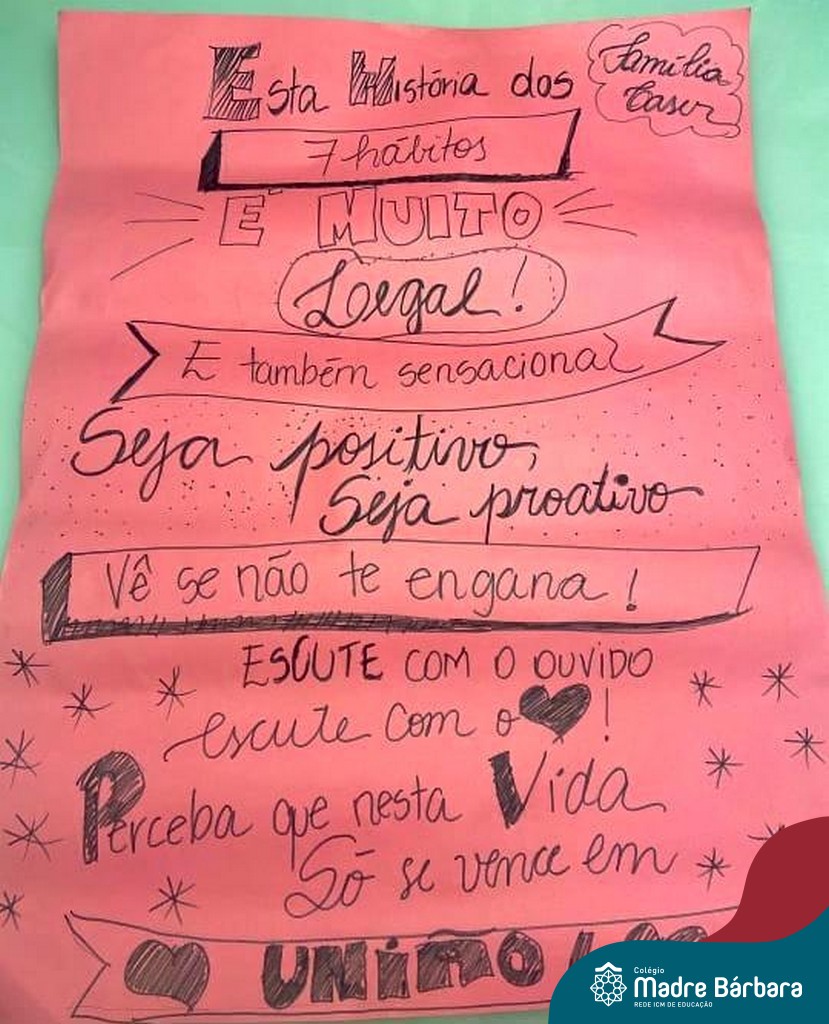 Esta História dos
Família
Caser
7 hábitos
É MUITO
Legal!
E também sensacional
Seja positivo,
Seja proativo
Vê se não te engana!
ESCUTE COM O OUVIDO
escute com o ♥!
Perceba que nesta Vida
Só se vence em
♥ UNIÃO!
Colégio
Madre Bárbara
REDE ICM DE EDUCAÇÃO